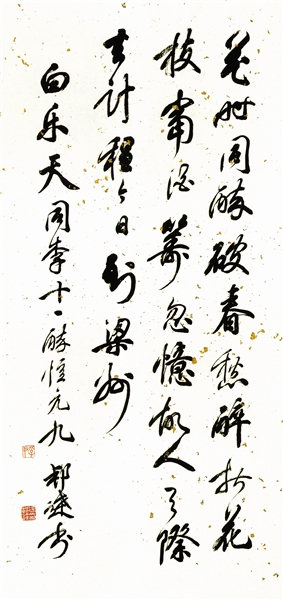 花时同醉破春愁醉折花
枝当酒筹忽忆故人天际
去计程今日到梁州
白乐天同李十一醉忆元九
书